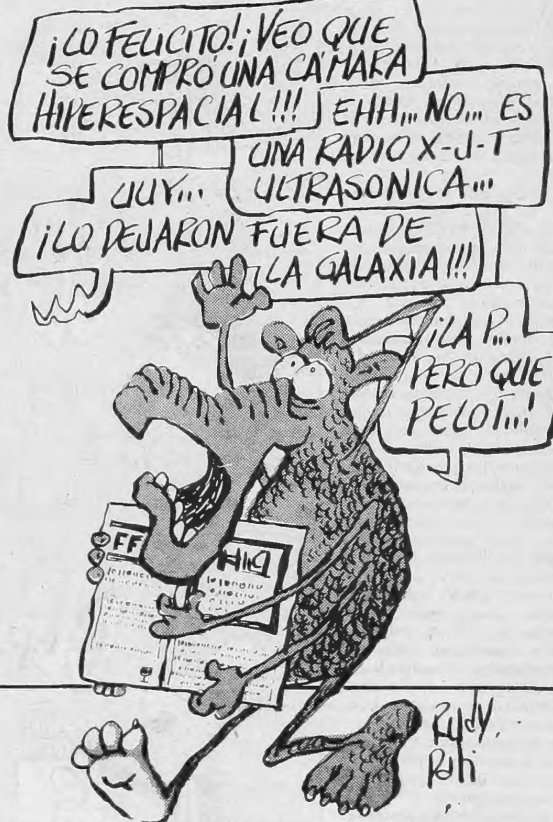 ¡LO FELICITO! ¡VEO QUE
SE COMPRÓ UNA CÁMARA
HIPERESPACIAL!!!
EHH... NO... ES
UNA RADIO X-J-T
ULTRASONICA...
UUY...
¡LO DEJARON FUERA DE
LA GALAXIA!!!
¡LA P...
PERO QUE
PELOT...!
FF
Rudy.